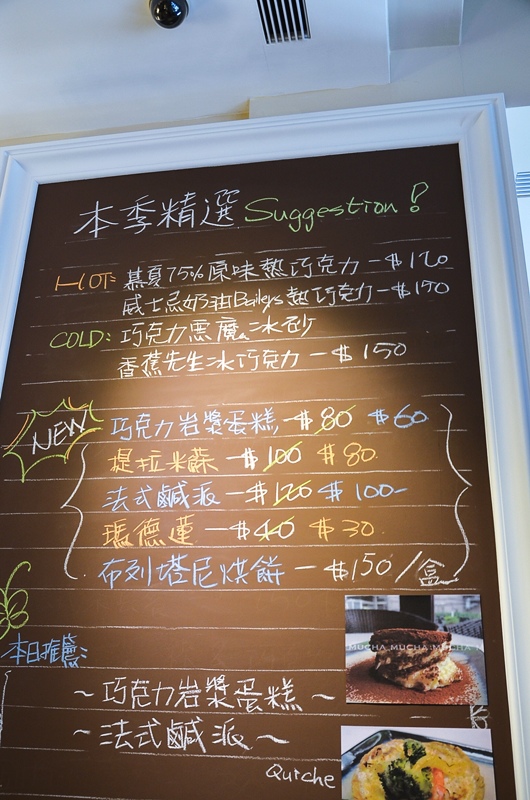 本季精選 Suggestion!
HOT: 慕夏75%原味熱巧克力 — $120
威士忌奶油Baileys熱巧克力 — $150
COLD: 巧克力惡魔冰砂
香蕉先生冰巧克力 — $150
NEW
巧克力岩漿蛋糕 — $80 $60
提拉米蘇 — $100 $80
法式鹹派 — $120 $100-
瑪德蓮 — $40 $30
布列塔尼烘餅 — $150/盒
本日推薦:
~巧克力岩漿蛋糕~
~法式鹹派~
Quiche
MUCHA MUCHA MUCHA